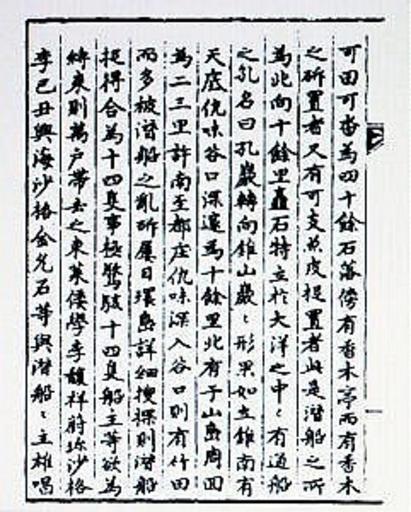 可田可畓為四十餘石落傍有香木亭而有香木
之斫置者又有可支魚皮捉置者此是潜船之所
為北向十餘里矗石特立於大洋之中〻有通船
之孔名曰孔巖轉向錐山巖〻形果如立錐南有
天底仇味谷口深邃為十餘里北有于山島周回
為二三里許南至都庄仇味深入谷口則有竹田
而多被潜船之亂斫屢日環島詳細搜探則潜船
捉得合為十四隻事極驚駭十四隻船主等欲為
縛束則萬戶帶去之東萊倭學李馥祥蔚珍沙格
李己丑興海沙格金允石等與潜船〻主雄唱